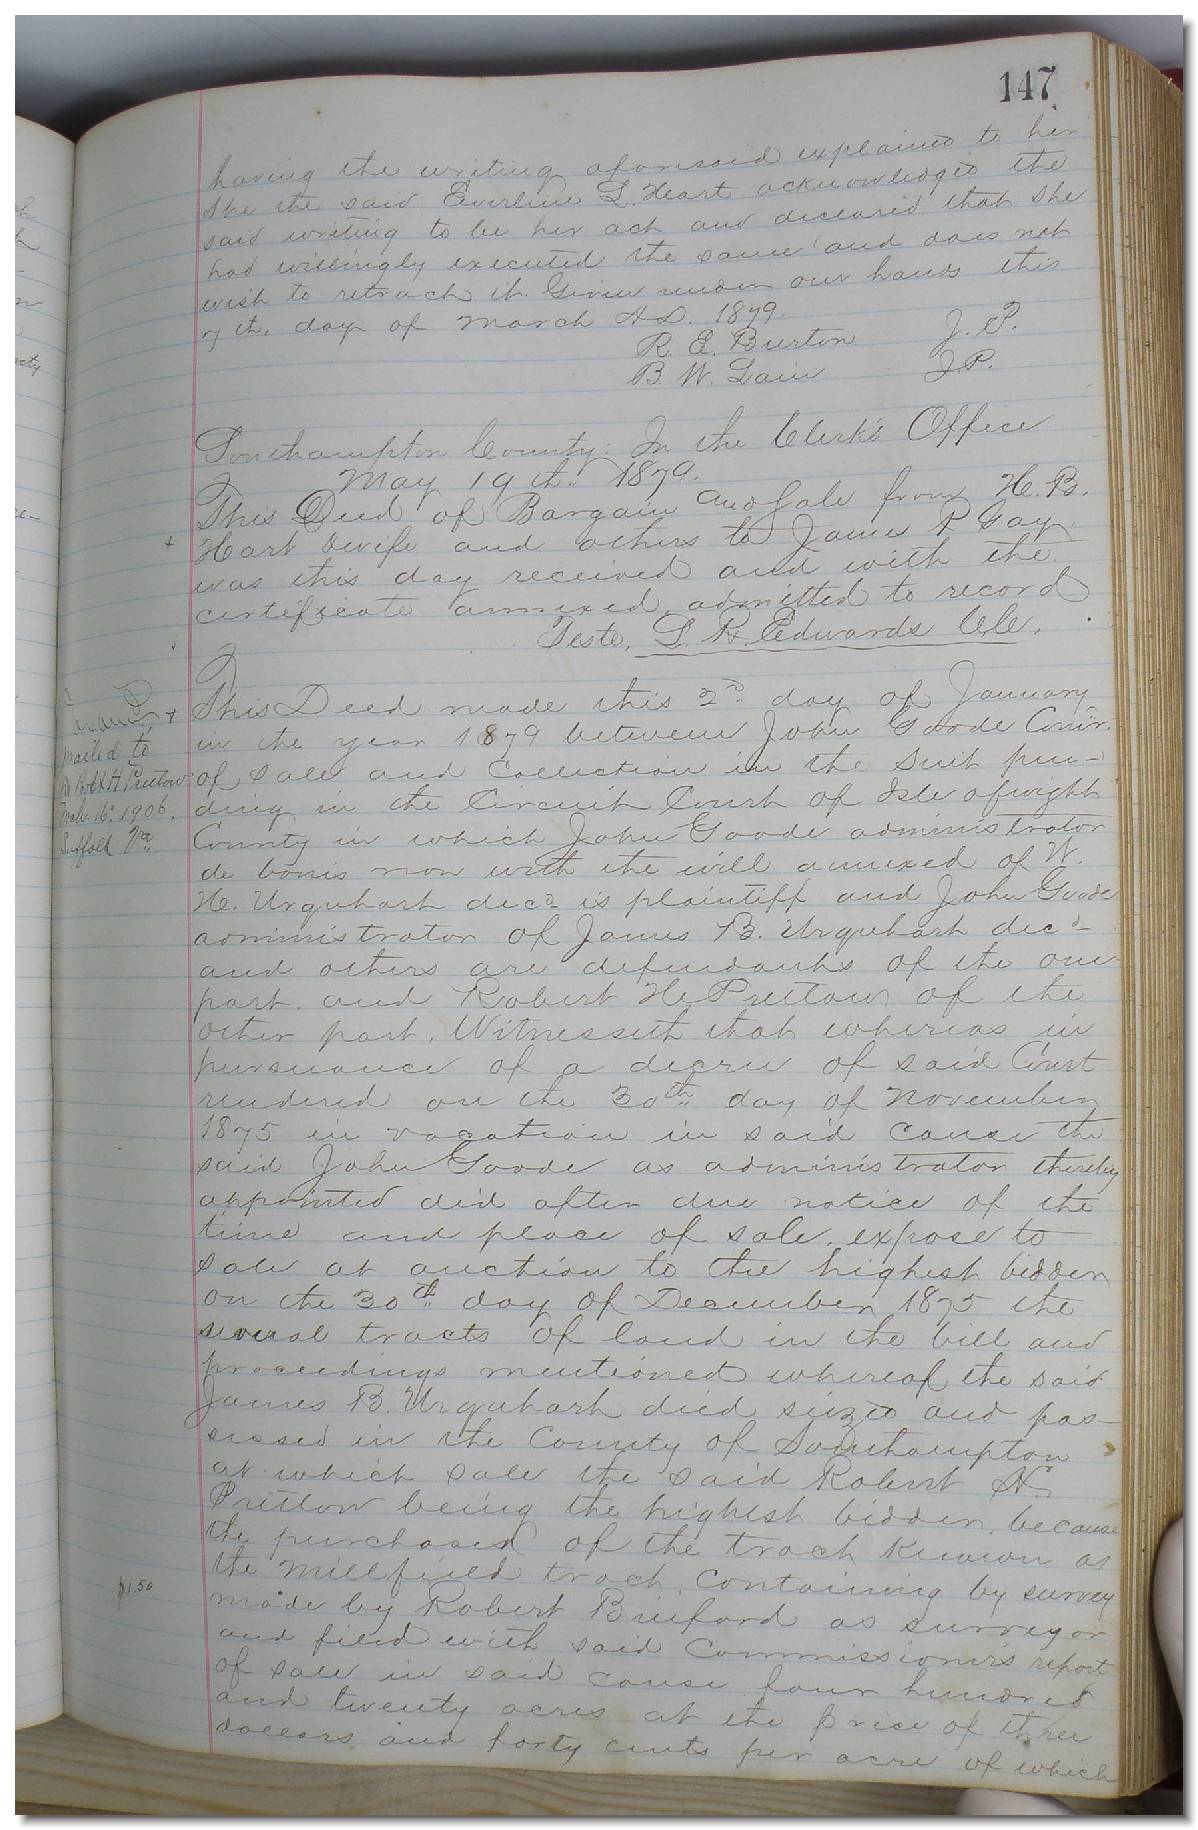 147
having the writing aforesaid explained to her
she the said Everline L. Heart acknowledged the
said writing to be her act and declared that she
had willingly executed the same and does not
wish to retract it. Given under our hands this
7th. day of March A.D. 1879.
R. E. Burton J. P.
B. W. Lain J. P.
Southampton County: In the Clerk's Office
May 19th. 1879.
This Deed of Bargain and Sale from H. B.
+ Hart & wife and others to James R Gay
was this day received and with the
certificate annexed, admitted to record
Teste, L. R. Edwards Clk.
This Deed made this 2nd day of January
in the year 1879 between John Goode Comr.
of sale and collection in the suit pen-
ding in the Circuit Court of Isle of wight
County in which John Goode administrator
de bonis non with the will annexed of W.
H. Urquhart decd is plaintiff and John Goode
administrator of James B. Urquhart decd
and others are defendants of the one
part. and Robert H. Pretlow of the
other part. Witnesseth that whereas in
pursuance of a decree of said Court
rendered on the 30th day of November
1875 in vacation in said cause the
said John Goode as administrator thereby
appointed did after due notice of the
time and place of sale, expose to
sale at auction to the highest bidder
on the 30th day of December 1875 the
several tracts of land in the bill and
proceedings mentioned whereof the said
James B. Urquhart died seized and pos-
sessed in the County of Southampton
at which sale the said Robert H
Pretlow being the highest bidder, because
the purchaser of the tract known as
the Millfield tract, containing by survey
made by Robert Bruford as surveyor
and filed with said Commissioner's report
of sale in said cause four hundred
and twenty acres at the price of three
dollars and forty cents per acre of which
Examd +
Mailed to
Robt H Pretlow
Mch. 16, 1906,
Suffolk Va
$1.50